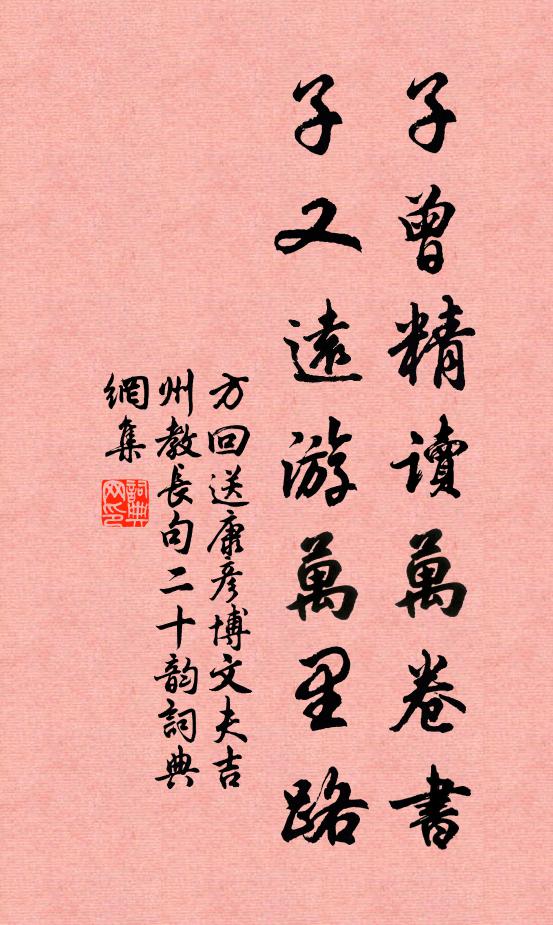 子曾精讀萬卷書
子又遠游萬里路
方回送康彦博文夫吉
州教長句二十韵詞典
網集
詞典網印